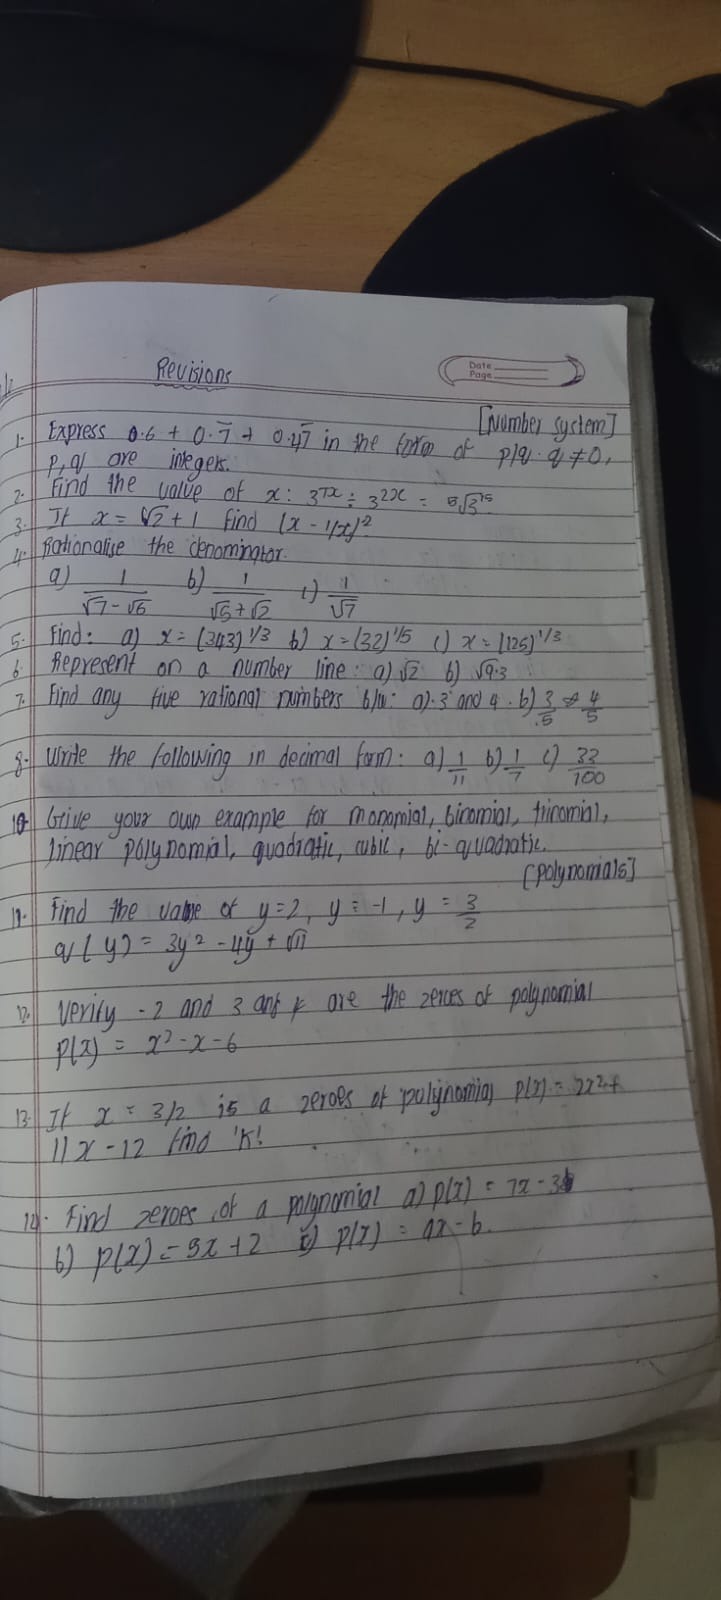 Revisions
Date
Page
[Number system]
1. Express 0.6 + 0.7̄ + 0.47̄ in the form of p/q. q ≠ 0,
p, q are integers.
2. Find the value of x: 3^7x ÷ 3^2x = ⁵√3^15
3. If x = √2 + 1 find (x - 1/x)²
4. Rationalise the denominator.
a) 1/(√7-√6) b) 1/(√5+√2) c) 1/√7
5. Find: a) x = (343)^1/3 b) x = (32)^1/5 c) x = (125)^1/3
6. Represent on a number line: a) √2 b) √9.3
7. Find any five rational numbers b/w: a) 3 and 4. b) 3/5 4/5
8. Write the following in decimal form: a) 1/11 b) 1/7 c) 33/100
10 Give your own example for monomial, binomial, trinomial,
linear polynomial, quadratic, cubic, bi-quadratic.
[polynomials]
11. Find the value of y=2, y = -1, y = 3/2
q(y) = 3y² - 4y + √11
12. Verify -2 and 3 are the zeroes of polynomial
p(x) = x² - x - 6
13. If x = 3/2 is a zeroes of polynomial p(x) = 2x² +
11x - 12 find 'K'
14. Find zeroes of a polynomial a) p(x) = 7x - 3
b) p(x) = 3x + 2 c) p(x) = ax - b.